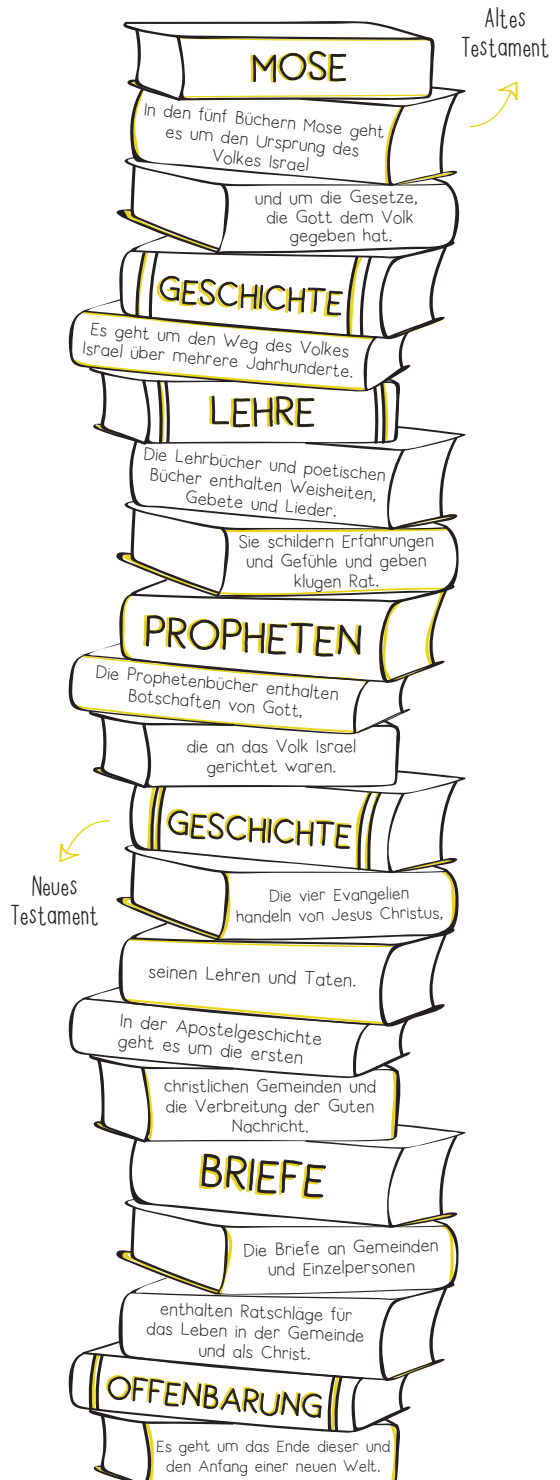 Altes
Testament
MOSE
In den fünf Büchern Mose geht
es um den Ursprung des
Volkes Israel
und um die Gesetze,
die Gott dem Volk
gegeben hat.
GESCHICHTE
Es geht um den Weg des Volkes
Israel über mehrere Jahrhunderte.
LEHRE
Die Lehrbücher und poetischen
Bücher enthalten Weisheiten,
Gebete und Lieder.
Sie schildern Erfahrungen
und Gefühle und geben
klugen Rat.
PROPHETEN
Die Prophetenbücher enthalten
Botschaften von Gott,
die an das Volk Israel
gerichtet waren.
Neues
Testament
GESCHICHTE
Die vier Evangelien
handeln von Jesus Christus,
seinen Lehren und Taten.
In der Apostelgeschichte
geht es um die ersten
christlichen Gemeinden und
die Verbreitung der Guten
Nachricht.
BRIEFE
Die Briefe an Gemeinden
und Einzelpersonen
enthalten Ratschläge für
das Leben in der Gemeinde
und als Christ.
OFFENBARUNG
Es geht um das Ende dieser und
den Anfang einer neuen Welt.